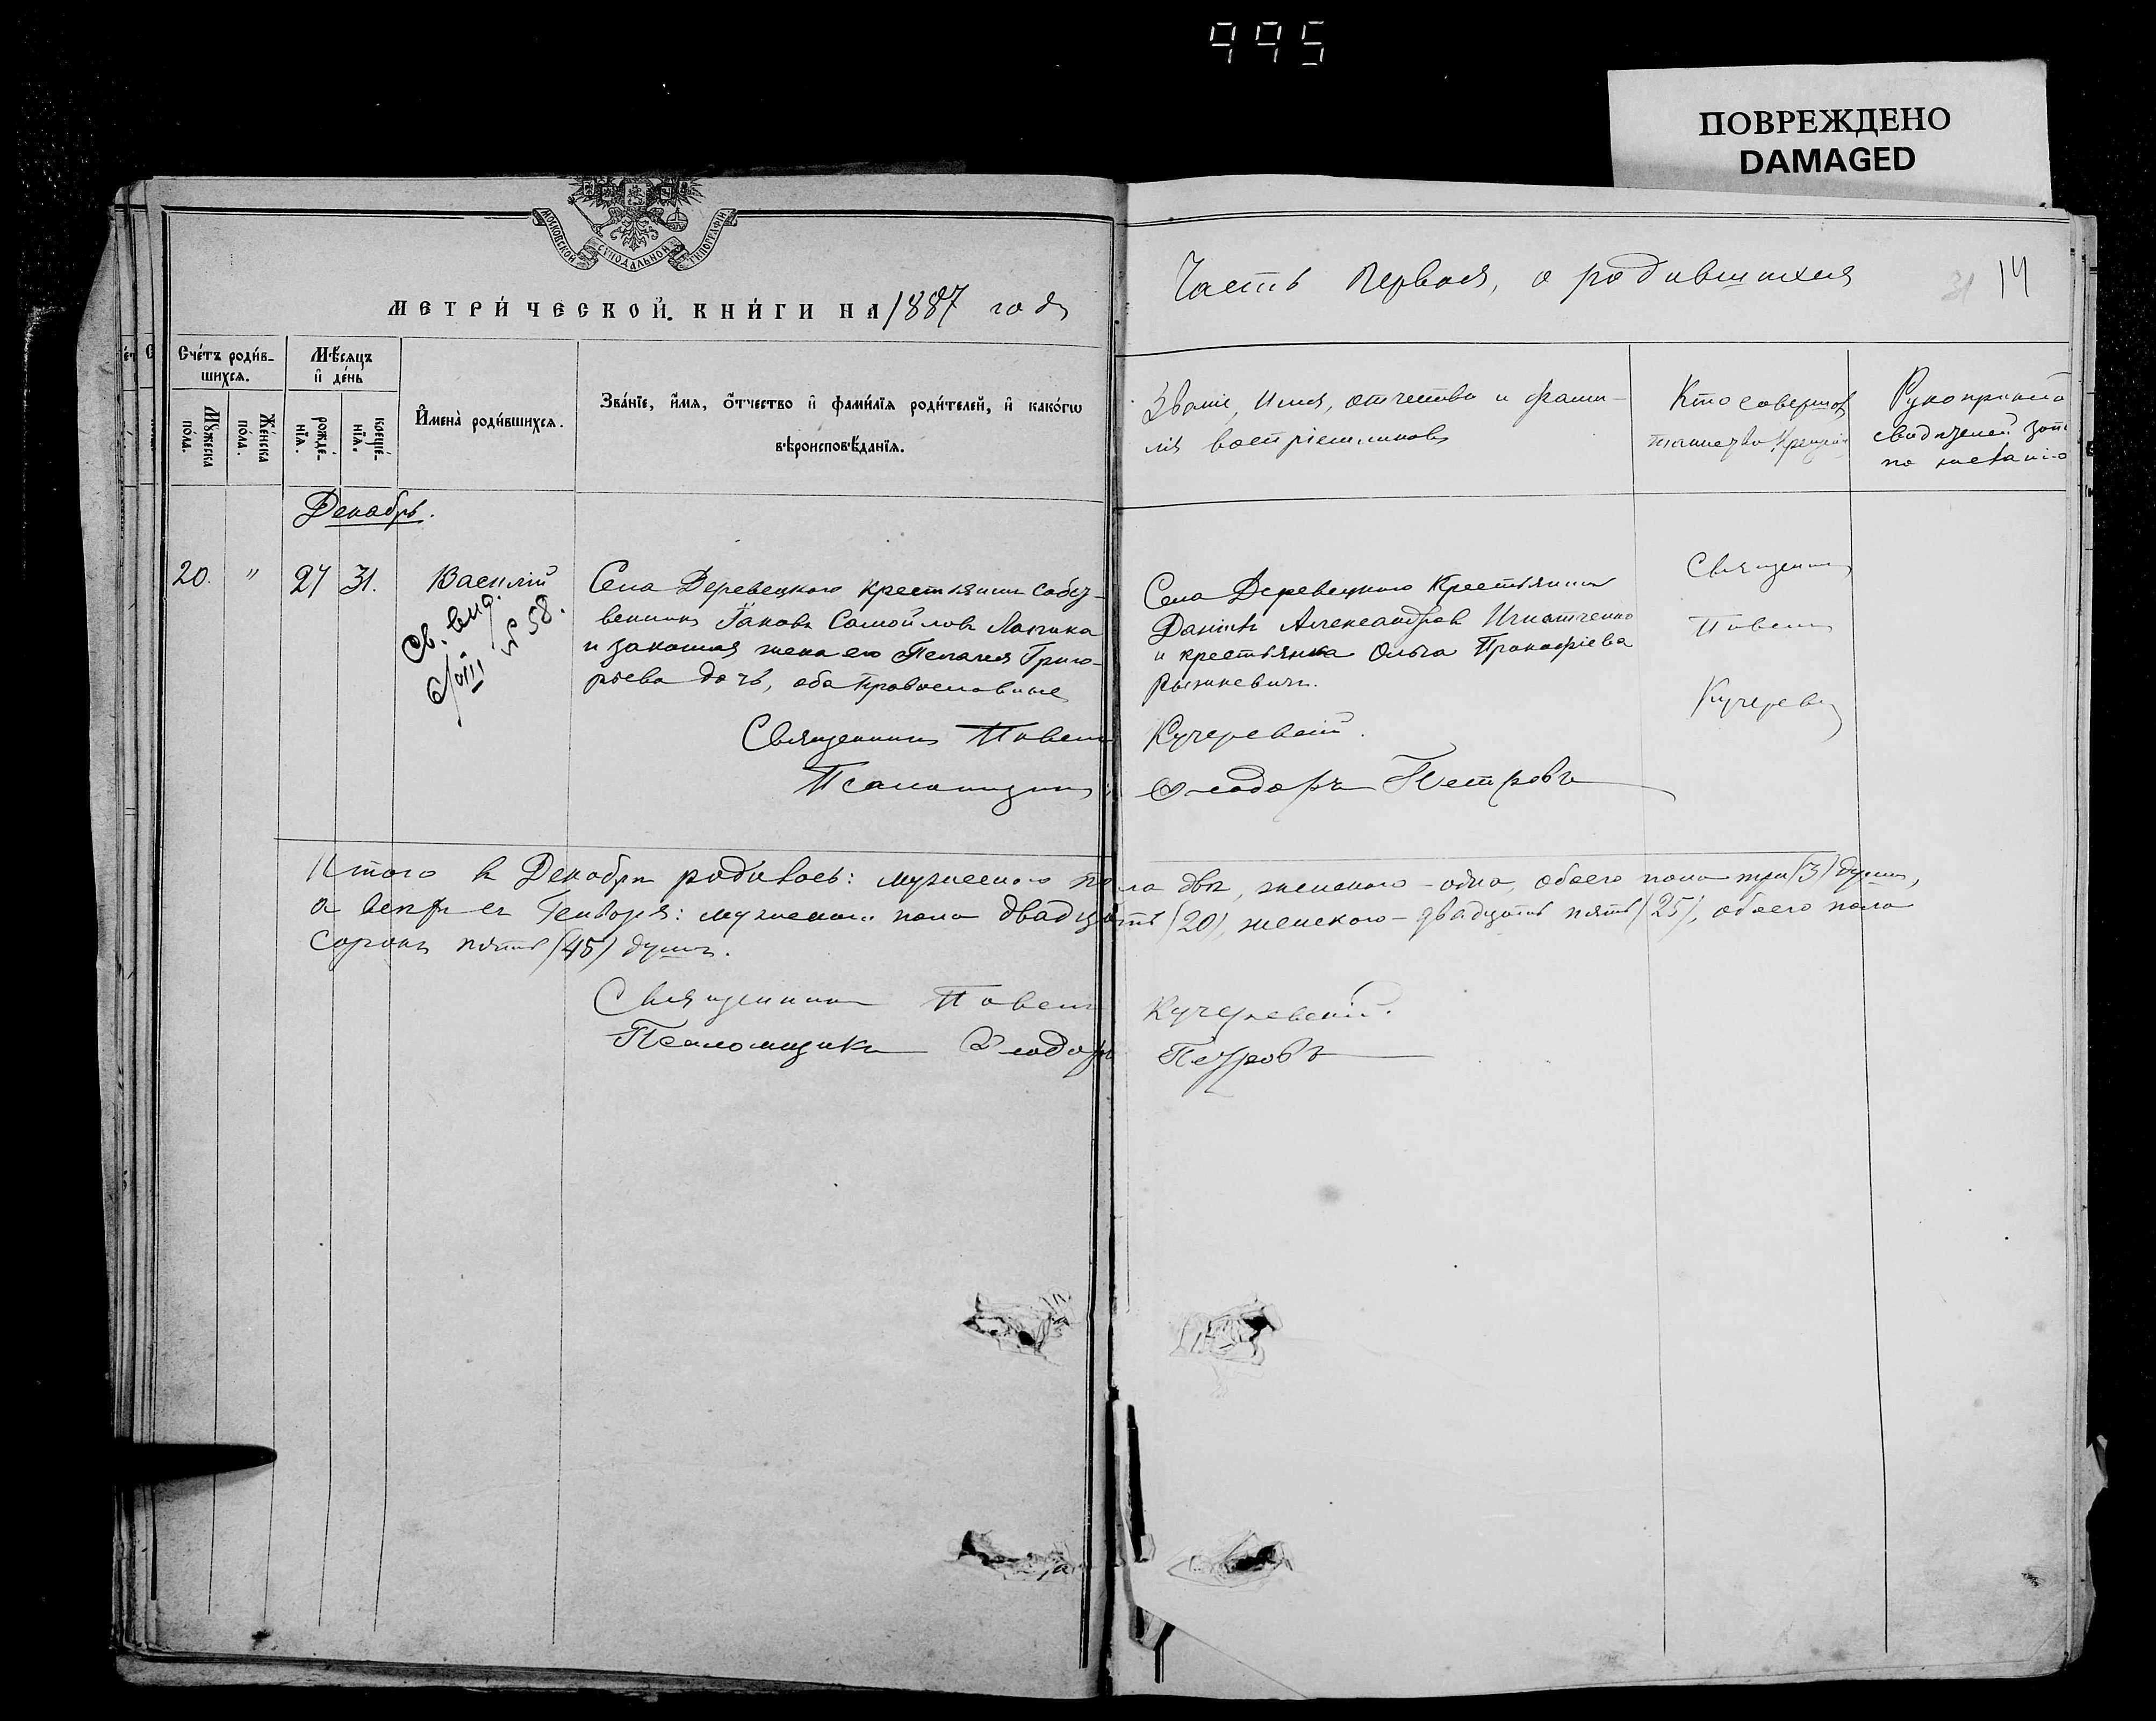 995
ПОВРЕЖДЕНО
DAMAGED
МОСКОВСКОЙ СѴНОДАЛЬНОЙ ТИПОГРАФІИ
МЕТРИ́ЧЕСКОЙ КНИ́ГИ НА 1887 годъ
Часть первая, о родившихся
31 14
Счéтъ роди́в-
шихся.
Мꙋ́жеска
по́ла.
Же́нска
по́ла.
Мѣ́сяцъ
и҆ де́нь
рожде́-
нїѧ.
креще́-
нїѧ.
И҆мена̀ роди́вшихсѧ.
Зва́нїе, и҆́мѧ, ѻ҆́тчество и҆ фами́лїѧ роди́телей, и҆ како́гѡ
вѣроисповѣ́данїѧ.
Званіе, имя, отчество и фами-
лія воспріемниковъ
Кто совершалъ
таинство крещенія
Рукоприклад
свидѣтелей запи
по желанію
Декабрь.
20. " 27 31. Василій
Св. выд.
VIII № 58.
Села Деревецкого крестьянинъ собст-
венникъ Іаковъ Самойловъ
и законная жена его Пелагея Григо-
рьева дочь, оба православные
Села Деревецкого крестьянинъ
Даніилъ Александровъ Игнатченко
и крестьянка Ольга Прокофіева
Священникъ
Павелъ
Священникъ Павелъ Кучеревскій.
Псаломщикъ Ѳеодоръ Петровъ
Итого въ Декабрѣ родилось: мужескаго пола два, женскаго – одна, обоего пола три (3) души,
а всѣхъ съ Генваря: мужескаго пола двадцать (20), женского – двадцать пять (25), обоего пола
сорокъ пять (45) душъ.
Священникъ Павелъ Кучеревскій.
Псаломщикъ Ѳеодоръ Петровъ